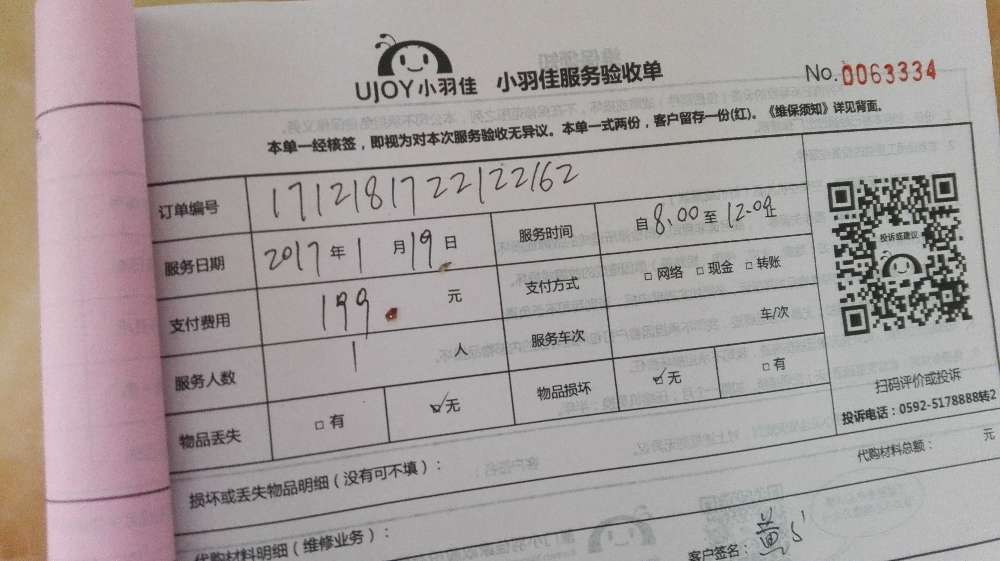 UJOY小羽佳 小羽佳服务验收单 No.0063334
本单一经核签，即视为对本次服务验收无异议。本单一式两份，客户留存一份(红)。《维保须知》详见背面。
订单编号 1712181722122162
服务日期 2017年1月19日 服务时间 自8.00至12.00止
支付费用 199. 元 支付方式 □网络 □现金 □转账
服务人数 1 人 服务车次 车/次
物品丢失 □有 ☑无 物品损坏 ☑无 □有
投诉或建议
扫码评价或投诉
投诉电话：0592-5178888转2
损坏或丢失物品明细（没有可不填）：
代购材料总额： 元
代购材料明细（维修业务）：
客户签名：黄